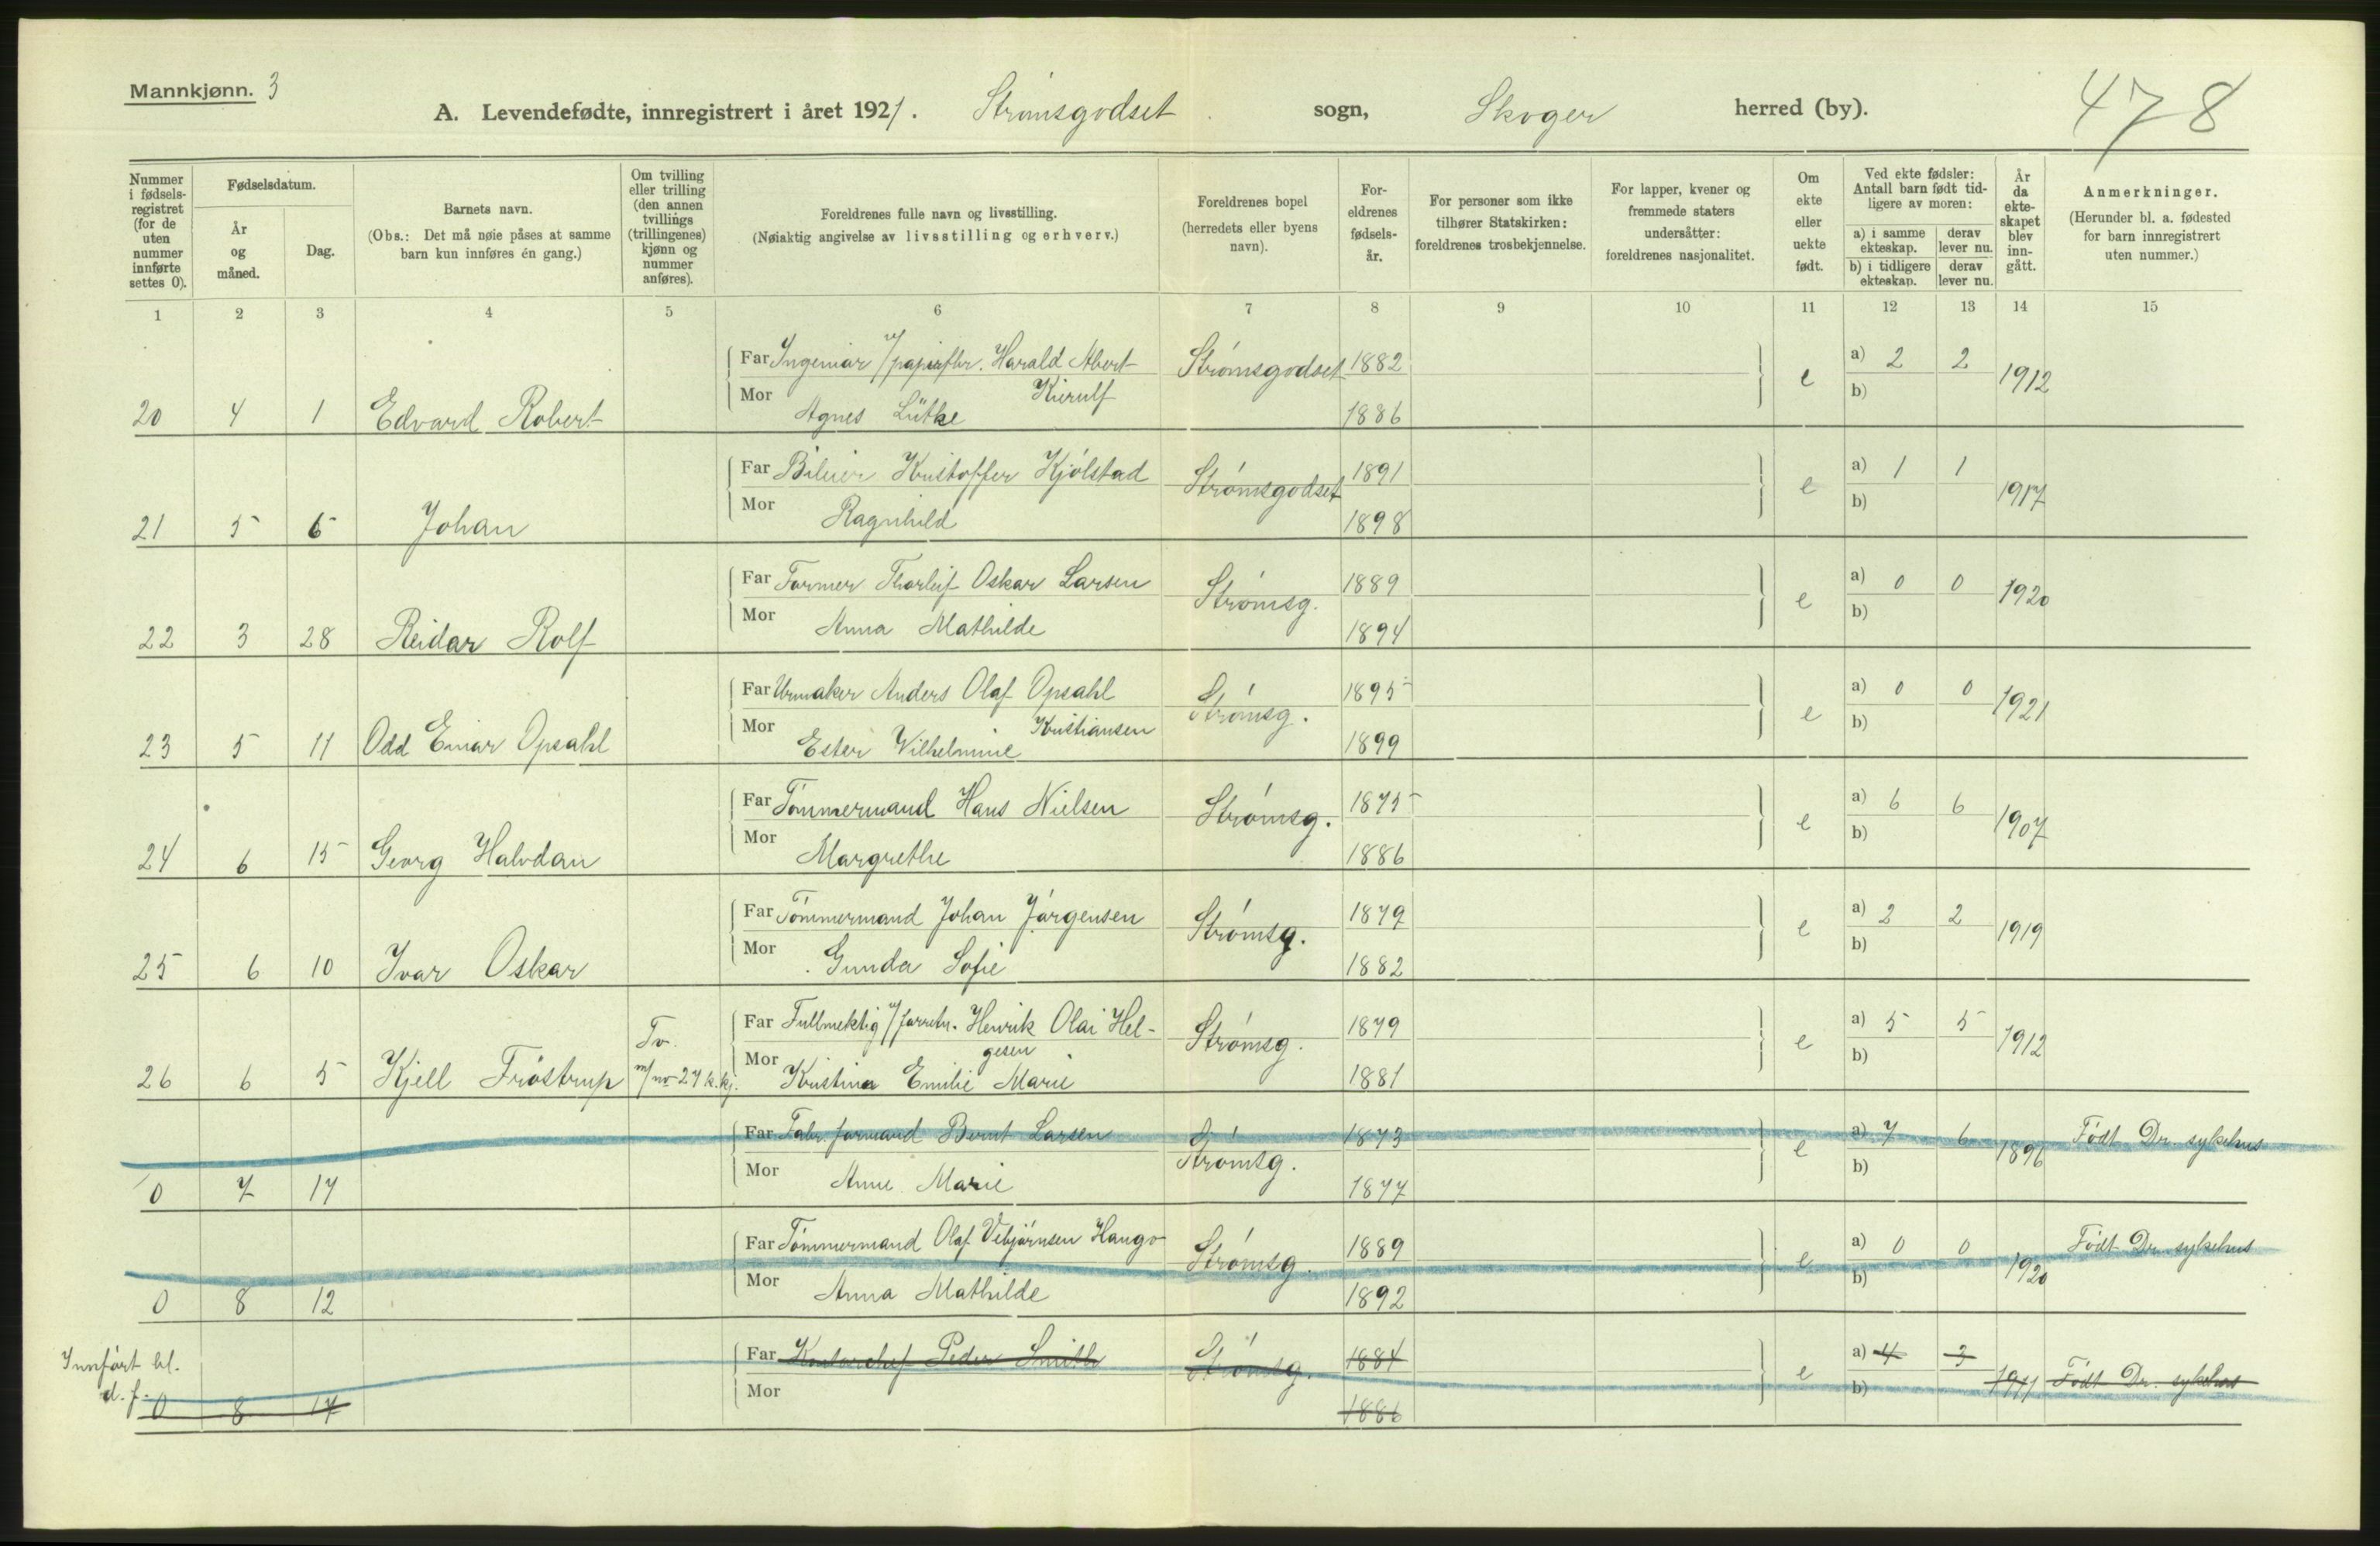 Mannkjønn. 3
A. Levendefødte, innregistrert i året 1921. Strømsgodset sogn, Skoger herred (by). 478
Nummer i fødselsregistret (for de uten nummer innførte settes 0).
Fødselsdatum.
År og måned.
Dag.
Barnets navn.
(Obs.: Det må nøie påses at samme barn kun innføres én gang.)
Om tvilling eller trilling (den annen tvillings (trillingenes) kjønn og nummer anføres).
Foreldrenes fulle navn og livsstilling.
(Nøiaktig angivelse av livsstilling og erhverv.)
Foreldrenes bopel
(herredets eller byens navn).
Foreldrenes fødselsår.
For personer som ikke tilhører Statskirken: foreldrenes trosbekjennelse.
For lapper, kvener og fremmede staters undersåtter: foreldrenes nasjonalitet.
Om ekte eller uekte født.
Ved ekte fødsler: Antall barn født tidligere av moren:
a) i samme ekteskap. derav lever nu.
b) i tidligere ekteskap. derav lever nu.
År da ekteskapet blev inngått.
Anmerkninger.
(Herunder bl. a. fødested for barn innregistrert uten nummer.)
1 2 3 4 5 6 7 8 9 10 11 12 13 14 15
Far Ingeniør v/papirfbr. Harald Abert Kierulf Strømsgodset 1882 e a) 2 2 1912
20 4 1 Edvard Robert Mor Agnes Lütke 1886 b)
Far Bileier Kristoffer Kjølstad Strømsgodset 1891 e a) 1 1 1917
21 5 6 Johan Mor Ragnhild 1898 b)
Far Former Thorleif Oskar Larsen Strømsg. 1889 e a) 0 0 1920
22 3 28 Reidar Rolf Mor Anna Mathilde 1894 b)
Far Urmaker Anders Olaf Opsahl Strømsg. 1895 e a) 0 0 1921
23 5 11 Odd Einar Opsahl Mor Ester Vilhelmine Kristiansen 1899 b)
Far Tømmermand Hans Nielsen Strømsg. 1875 e a) 6 6 1907
24 6 15 Georg Halvdan Mor Margrethe 1886 b)
Far Tømmermand Johan Jørgensen Strømsg. 1879 e a) 2 2 1919
25 6 10 Ivar Oskar Mor Gunda Sofie 1882 b)
Far Fullmektig v/forretn. Henrik Olai Helgesen Strømsg. 1879 e a) 5 5 1912
26 6 5 Kjell Frøstrup Tv. m/ no 27 k.kj. Mor Kristina Emilie Marie 1881 b)
Far Fabr. formand Bernt Larsen Strømsg. 1873 e a) 7 6 1896 Født Dr. sykehus
0 7 17 Mor Anne Marie 1877 b)
Far Tømmermand Olaf Vebjørnsen Haugo Strømsg. 1889 e a) 0 0 1920 Født Dr. sykehus
0 8 12 Mor Anna Mathilde 1892 b)
Innført bl. d. f.
Far Kontorchef Peder Smith Strømsg. 1884 e a) 4 3 1911 Født Dr. sykehus
0 8 17 Mor 1886 b)